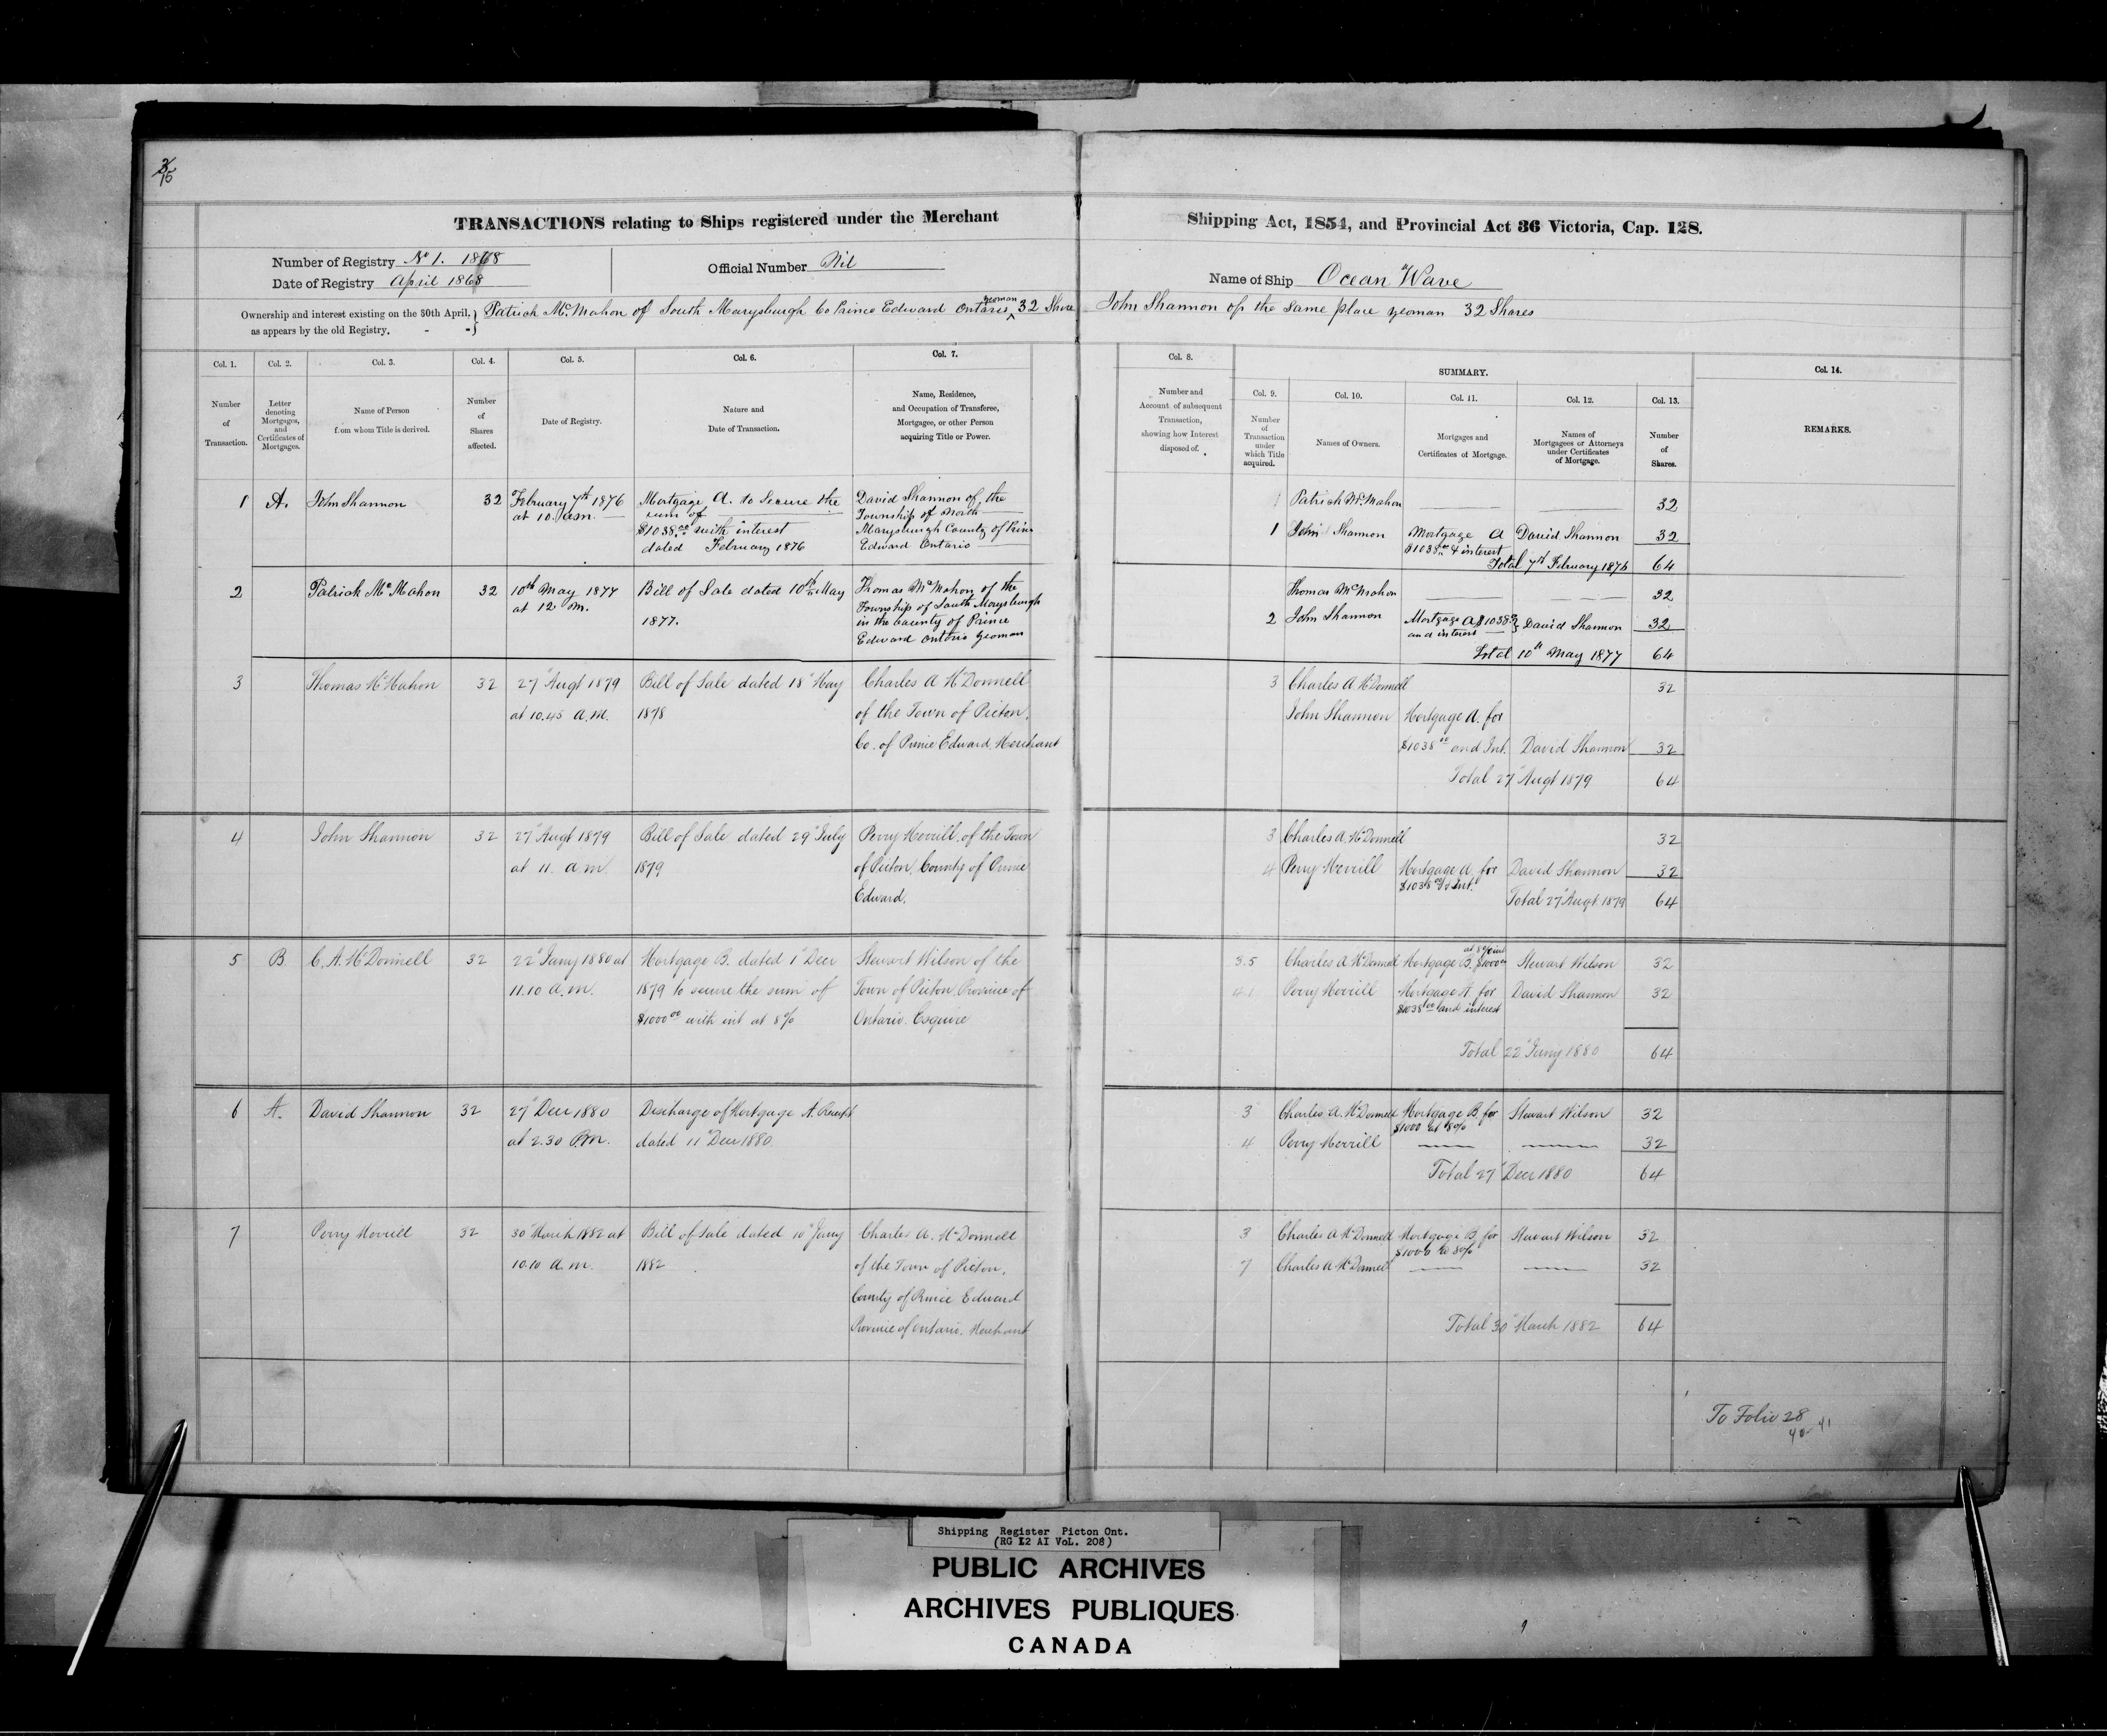 TRANSACTIONS relating to Ships registered under the Merchant Shipping Act, 1854, and Provincial Act 36 Victoria, Cap. 128.
Number of Registry No 1. 1868
Date of Registry April 1868
Official Number Nil
Name of Ship "Ocean Wave
Ownership and interest existing on the 30th April,
as appears by the old Registry. - -
Patrick McMahon of South Marysburgh Co Prince Edward Ontario yeoman 32 Share John Shannon of the same place yeoman 32 Shares
Col. 1.
Number
of
Transaction.
Col. 2.
Letter
denoting
Mortgages,
and
Certificates of
Mortgages.
Col. 3.
Name of Person
from whom Title is derived.
Col. 4.
Number
of
Shares
affected.
Col. 5.
Date of Registry.
Col. 6.
Nature and
Date of Transaction.
Col. 7.
Name, Residence,
and Occupation of Transferee,
Mortgagee, or other Person
acquiring Title or Power.
Col. 8.
Number and
Account of subsequent
Transaction,
showing how Interest
disposed of.
SUMMARY.
Col. 9.
Number
of
Transaction
under
which Title
acquired.
Col. 10.
Names of Owners.
Col. 11.
Mortgages and
Certificates of Mortgage.
Col. 12.
Names of
Mortgagees or Attorneys
under Certificates
of Mortgage.
Col. 13.
Number
of
Shares.
Col. 14.
REMARKS.
1 A. John Shannon 32
February 7th 1876
at 10. am.
Mortgage A. to Secure the
sum of
$1038.00 with interest
dated February 1876
David Shannon of the
Township of North
Marysburgh County of Prince
Edward Ontario
1 Patrick McMahon 32
1 John Shannon Mortgage A David Shannon 32
$1038.00 & interest
Total 7th February 1876 64
2 Patrick McMahon 32
10th May 1877
at 12 m.
Bill of Sale dated 10th May
1877.
Thomas McMahon of the
Township of South Marysburgh
in the County of Prince
Edward Ontario Yeoman
Thomas McMahon 32
2 John Shannon Mortgage A $1038 David Shannon 32
and interest
Total 10th May 1877 64
3 Thomas McMahon 32
27" Augt 1879
at 10.45 A.M.
Bill of Sale dated 18" May
1878
Charles A McDonnell
of the Town of Picton,
Co. of Prince Edward, Merchant
3 Charles A. McDonnell 32
John Shannon Mortgage A. for
$1038 00 and Int. David Shannon 32
Total 27" Augt 1879 64
4 John Shannon 32
27" Augt 1879
at 11. a.m.
Bill of Sale dated 29" July
1879
Perry Merrill, of the Town
of Picton, County of Prince
Edward.
3 Charles A. McDonnell 32
4 Perry Merrill Mortgage A. for David Shannon 32
Total 27" Augt 1879 64
5 B C. A. McDonnell 32
22" Jany 1880 at
11.10 A.M.
Mortgage B. dated 1" Decr
1879 to secure the sum of
$1000 00 with int at 8%
Stewart Wilson of the
Town of Picton, Province of
Ontario. Esquire
3.5 Charles A McDonnell Mortgage B. $1000 at 8% int Stewart Wilson 32
4.1 Perry Merrill Mortgage A. for David Shannon 32
$1038 00 and interest
Total 22" Jany 1880 64
6 A. David Shannon 32
27" Decr 1880
at 2.30 P.M.
Discharge of Mortgage A. Receipt
dated 11" Decr 1880
3 Charles A. McDonnell Mortgage B. for Stewart Wilson 32
$1000 at 8%
4 Perry Merrill 32
Total 27" Decr 1880 64
7 Perry Merrill 32
30" March 1882 at
10.10 A.M.
Bill of Sale dated 10" Jany
1882
Charles A. McDonnell
of the Town of Picton,
County of Prince Edward
Province of Ontario. Merchant
3 Charles A McDonnell Mortgage B. for Stewart Wilson 32
7 Charles A McDonnell 32
Total 30" March 1882 64
To Folio 28
40-41
Shipping Register Picton Ont.
(RG 12 AI VoL. 208)
PUBLIC ARCHIVES
ARCHIVES PUBLIQUES
CANADA